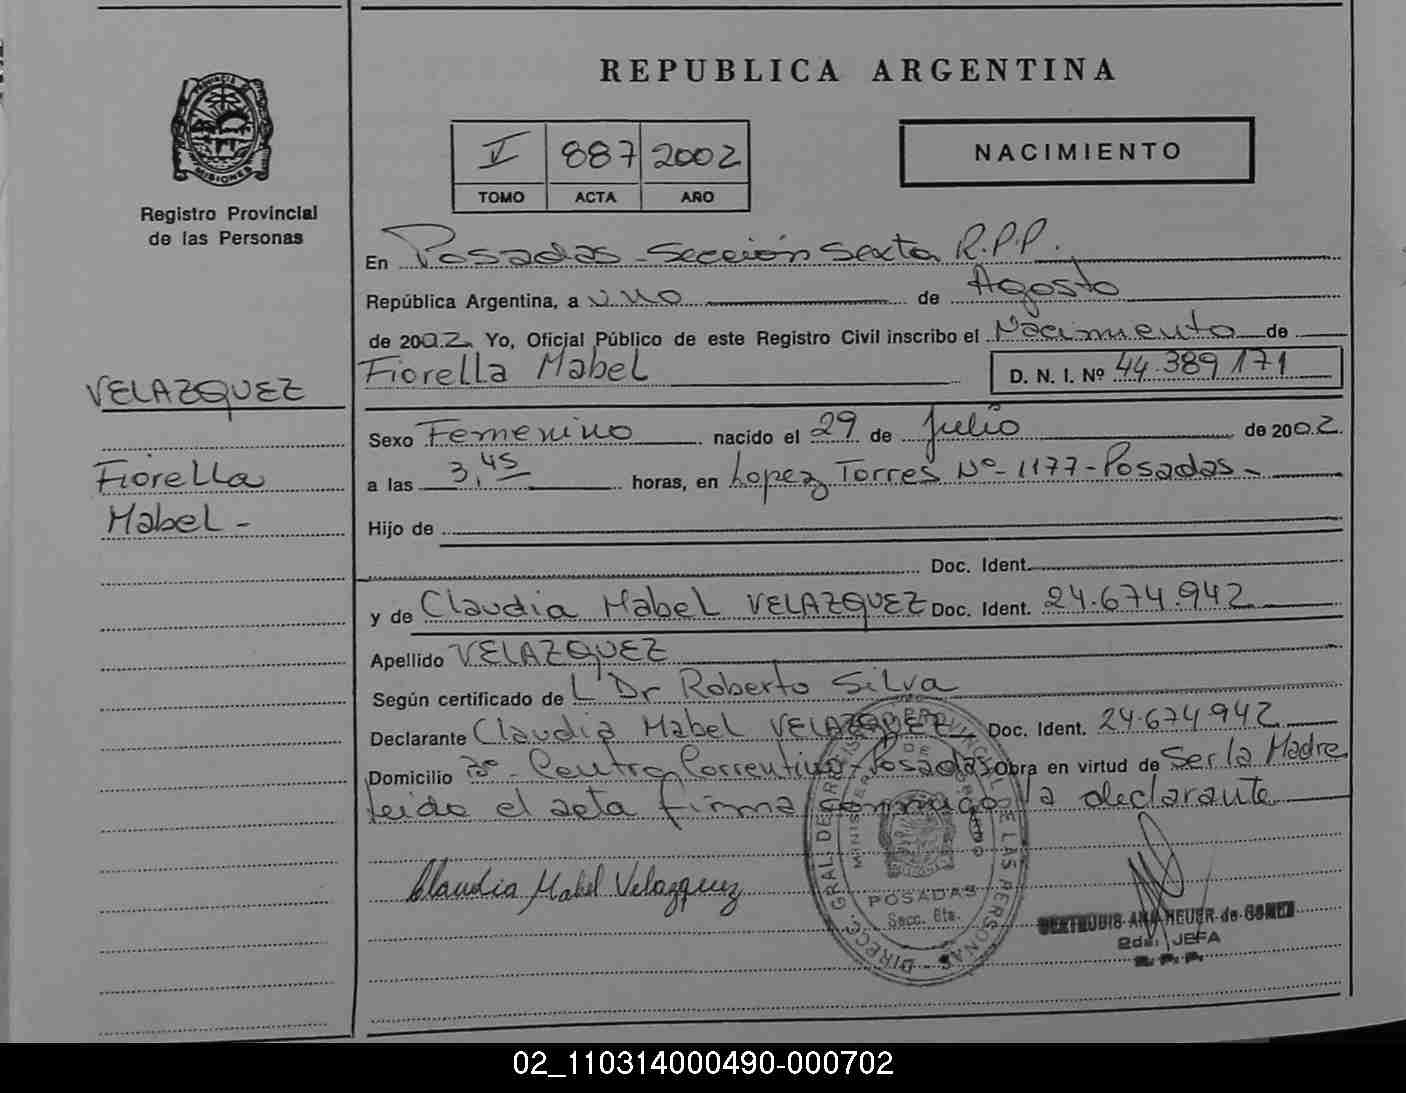 REPUBLICA ARGENTINA
PROVINCIA
MISIONES
Registro Provincial
de las Personas
V 887 2002
TOMO ACTA AÑO
NACIMIENTO
En Posadas - Sección Sexta R.P.P.
República Argentina, a uno de Agosto
de 2002 Yo, Oficial Público de este Registro Civil inscribo el Nacimiento de
Fiorella Mabel D. N. I. Nº 44.389.171
VELAZQUEZ
Fiorella
Mabel -
Sexo Femenino nacido el 29 de Julio de 2002.
a las 3,45 horas, en Lopez Torres Nº - 1177 - Posadas -
Hijo de
Doc. Ident.
y de Claudia Mabel VELAZQUEZ Doc. Ident. 24.674.942
Apellido VELAZQUEZ
Según certificado de L Dr Roberto Silva
Declarante Claudia Mabel VELAZQUEZ Doc. Ident. 24.674.942
Domicilio Correntino - Posadas Obra en virtud de Ser la Madre
leida el acta firma conmigo la declarante
Claudia Mabel Velazquez
DIRECC. GRAL. DE REGISTRO PROVINCIAL DE LAS PERSONAS
MINISTERIO DE GOBIERNO
POSADAS
Secc. 6ta.
GERTRUDIS ANA HEUER de GOMEZ
2da. JEFA
R. P. P.
02_110314000490-000702